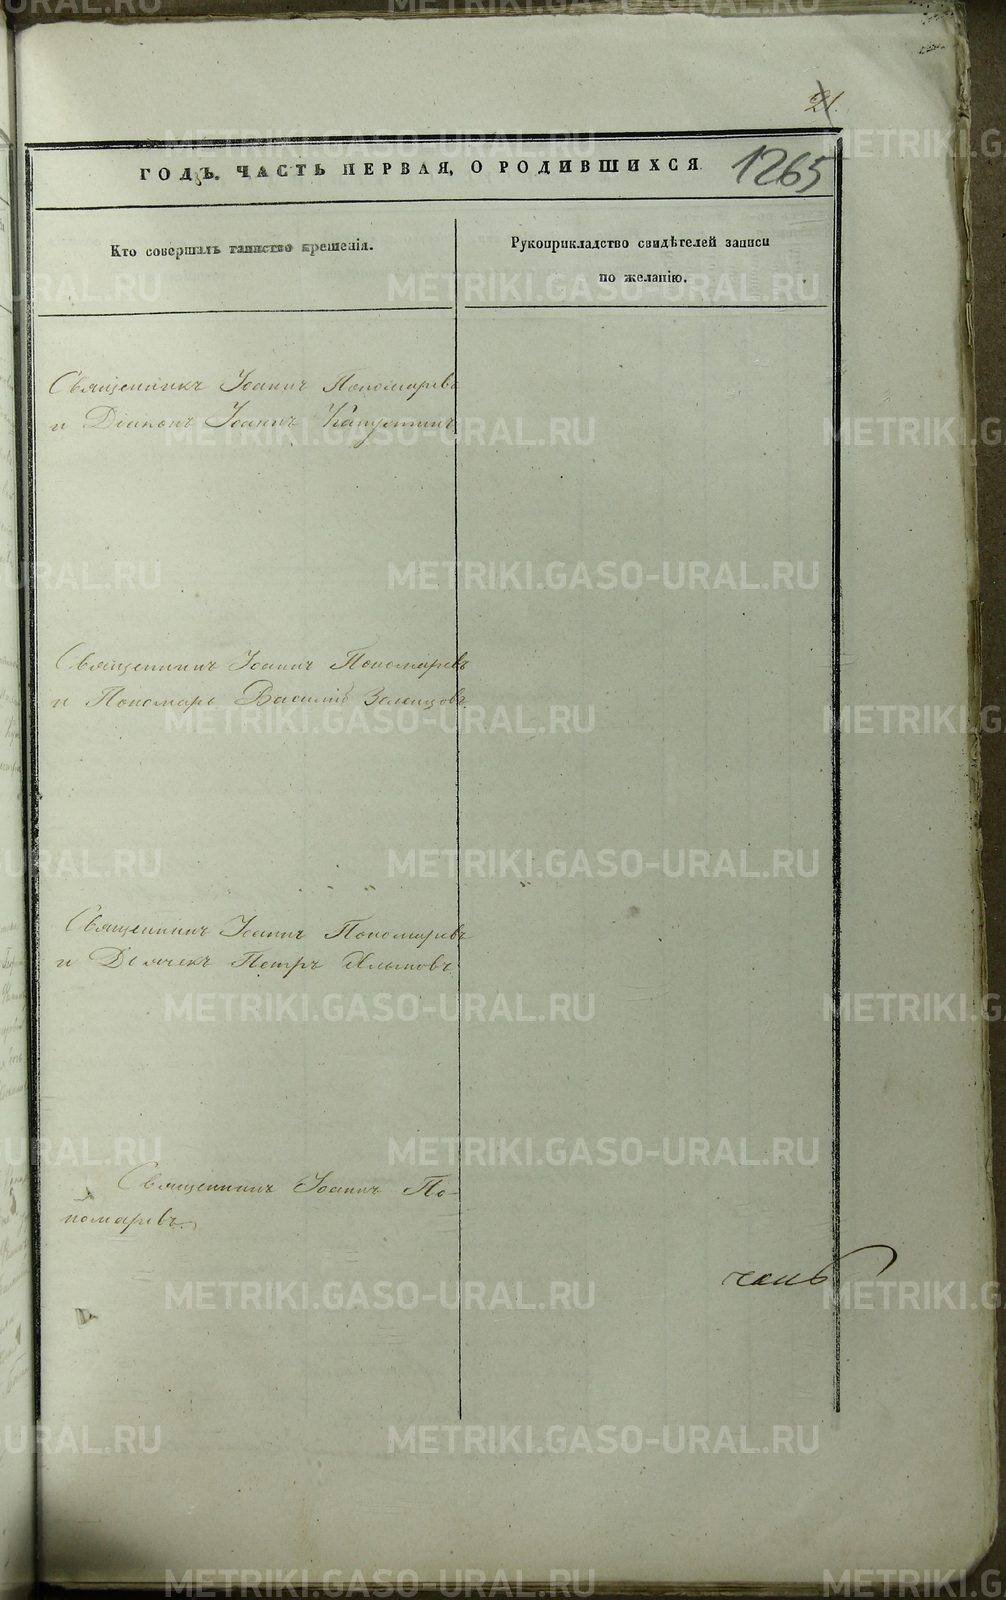 21.
ГОДЪ. ЧАСТЬ ПЕРВАЯ, О РОДИВШИХСЯ
1265
Кто совершалъ таинство крещенія.
Рукоприкладство свидѣтелей записи
по желанію.
Священникъ Іоаннъ Пономаревъ
и Діаконъ Іоаннъ
Священникъ Іоаннъ Пономаревъ
и Пономарь Василій
Священникъ Іоаннъ Пономаревъ
и Дьячекъ Петръ
Священникъ Іоаннъ По-
номаревъ.
METRIKI.GASO-URAL.RU